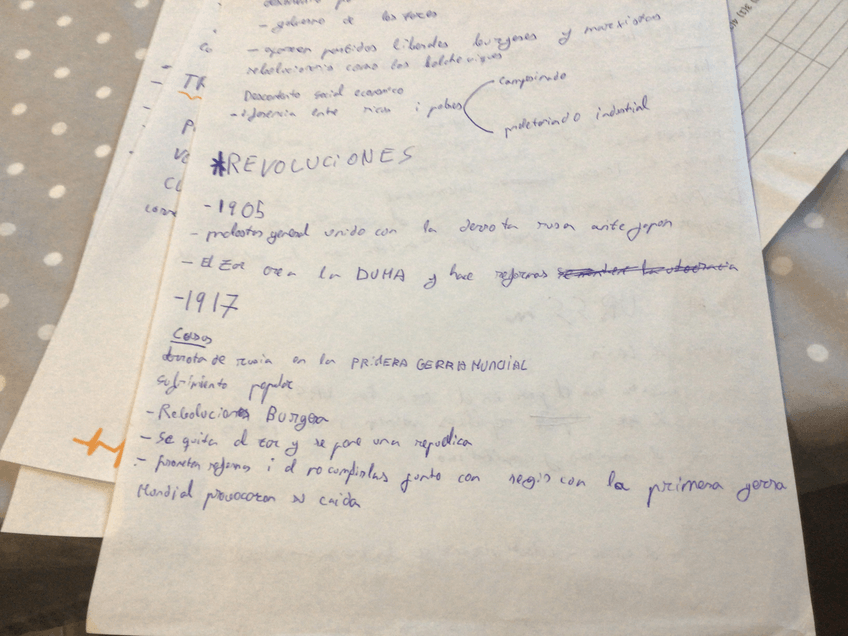 - gobierno de los
- aparecen partidos liberales burgeses y marxistas
rebolucionario como los bolcheviques
Descontento social economico
- diferencia entre ricos i pobres
campesinado
proletariado industrial
*REVOLUCIONES
- 1905
- protestas general unido con la derrota rusa ante japon
- El Zar crea la DUMA y hace reformas
- 1917
Causas
derrota de rusia en la PRIMERA GERRA MUNDIAL
sufrimiento popular
- Rebolucion Burgea
- Se quita el zar y se pone una republica
- prometen reformas i el no cumplirlas junto con segir con la primera gerra
Mundial provocaron su caida
TR